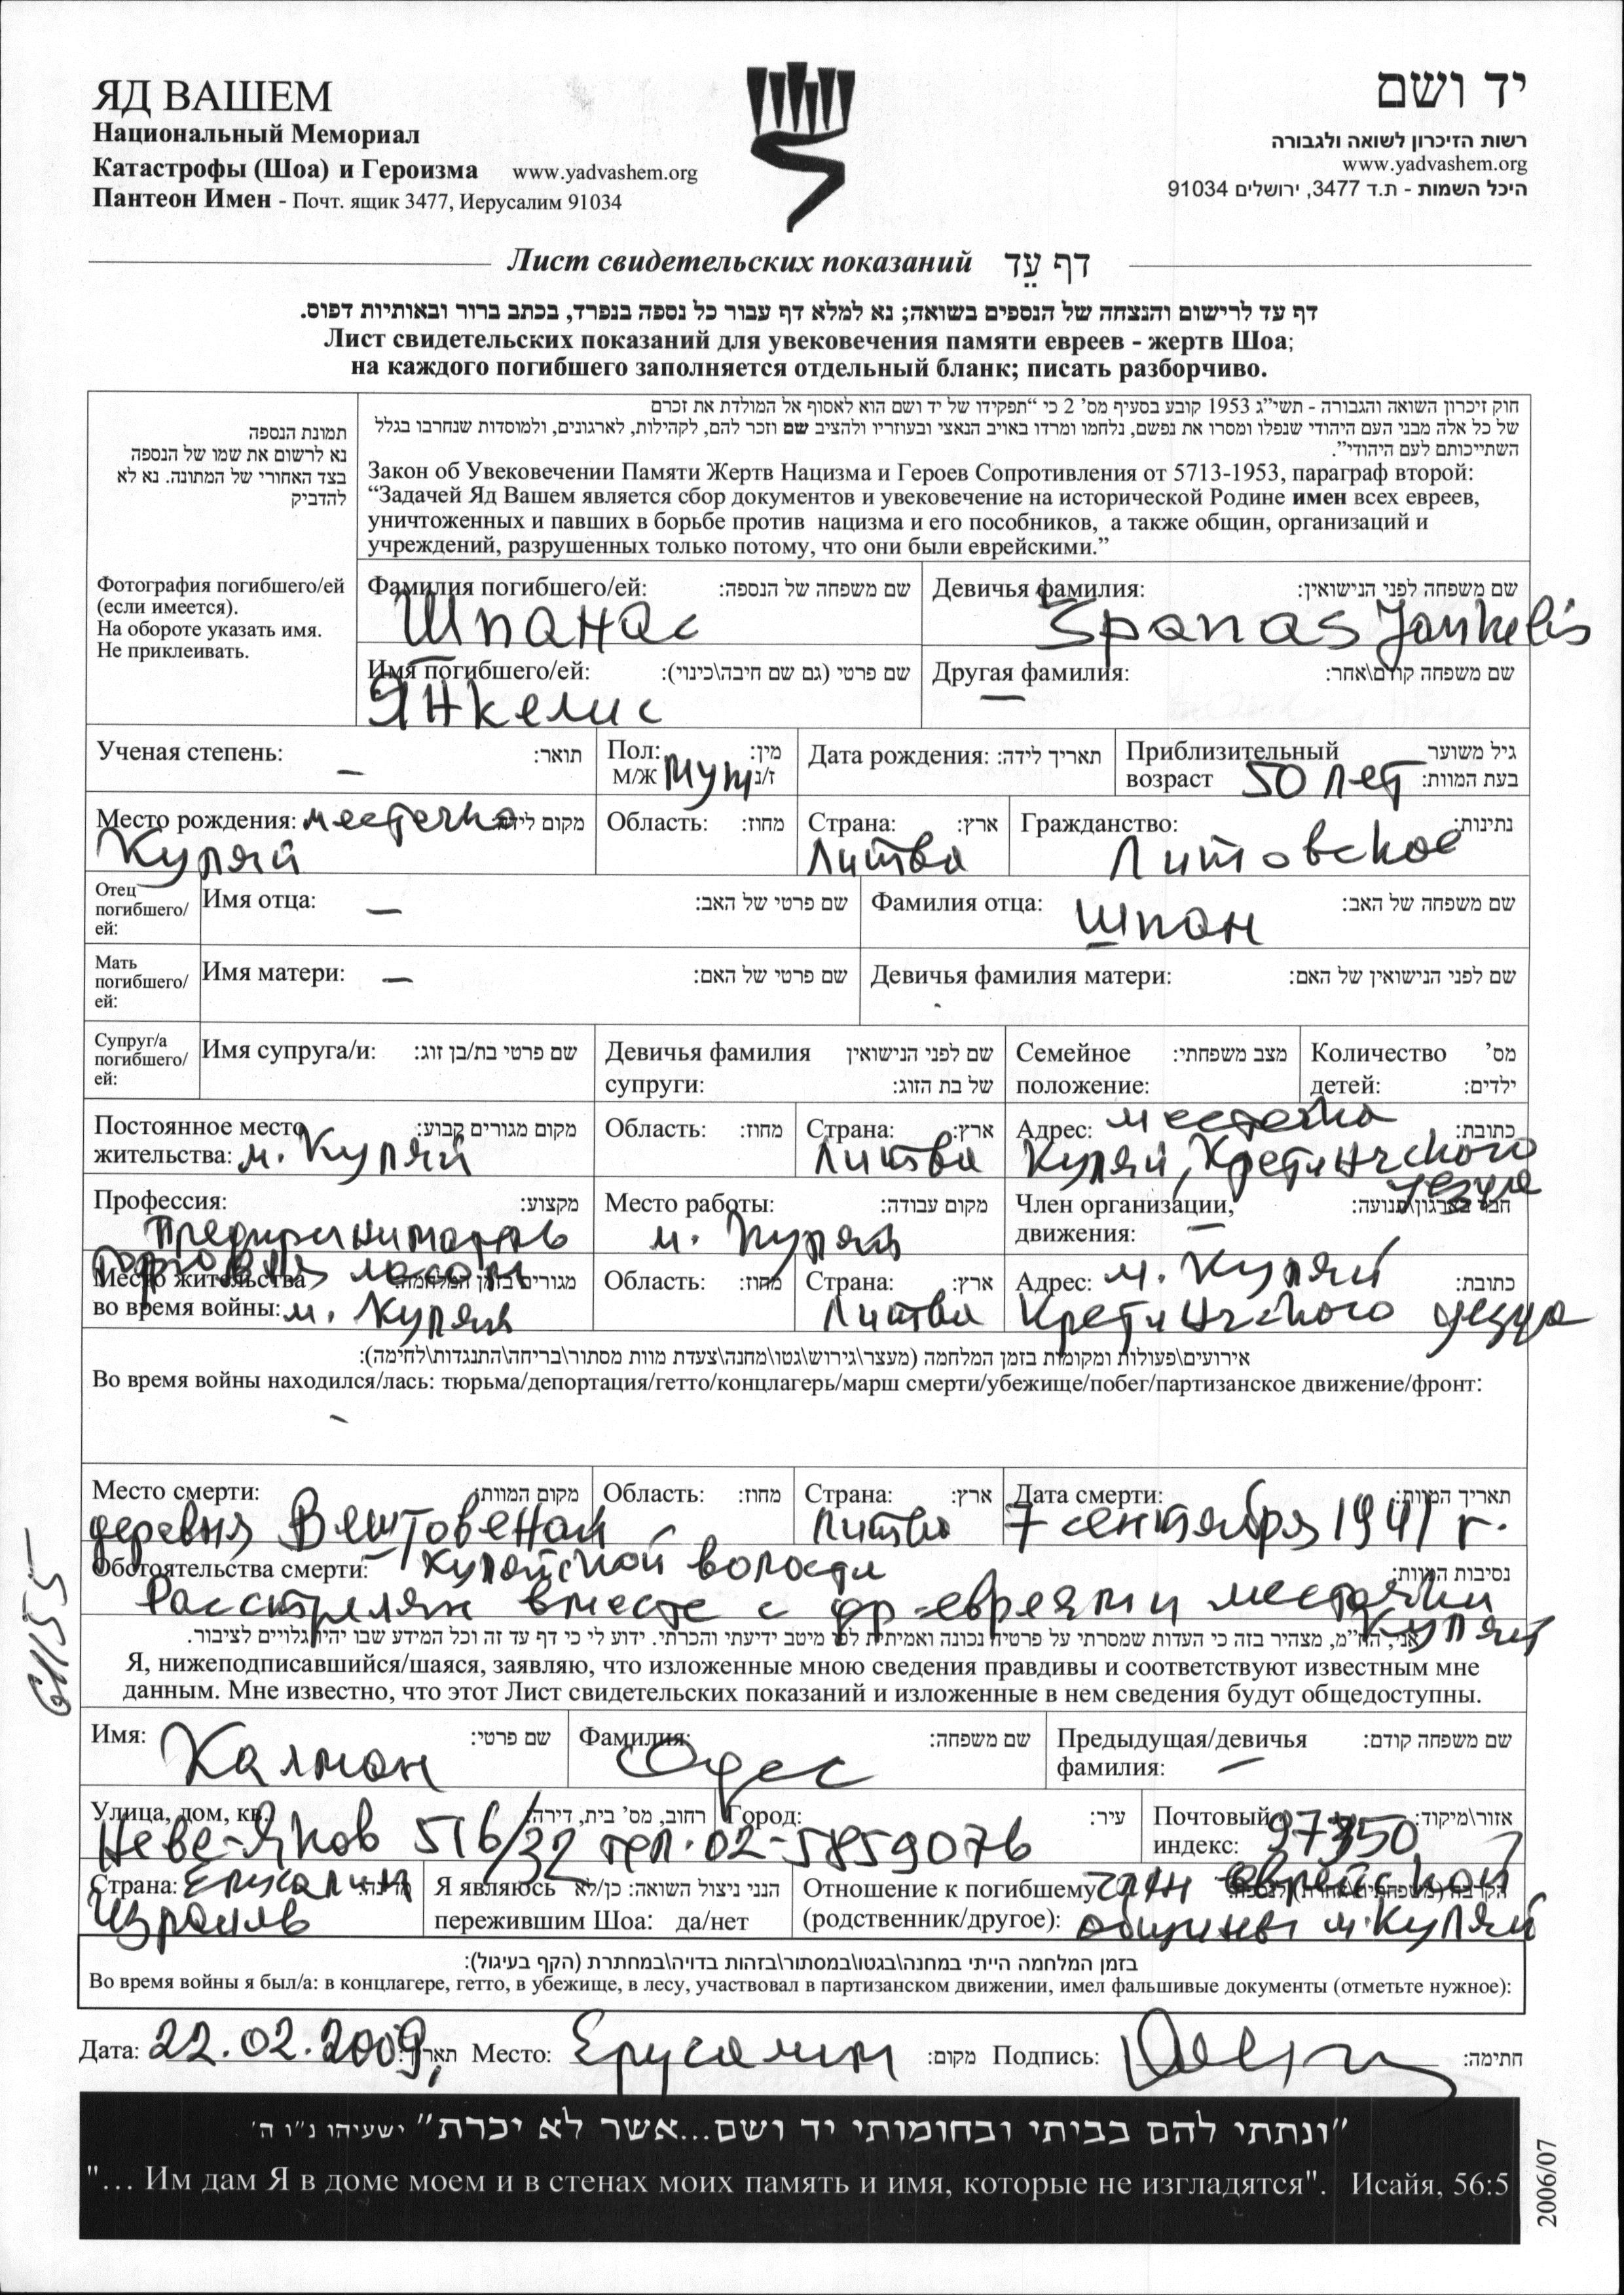 ЯД ВАШЕМ
Национальный Мемориал
Катастрофы (Шоа) и Героизма www.yadvashem.org
Пантеон Имен - Почт. ящик 3477, Иерусалим 91034
יד ושם
רשות הזיכרון לשואה ולגבורה
www.yadvashem.org
היכל השמות - ת.ד 3477, ירושלים 91034
Лист свидетельских показаний דף עֵד
דף עד לרישום והנצחה של הנספים בשואה; נא למלא דף עבור כל נספה בנפרד, בכתב ברור ובאותיות דפוס.
Лист свидетельских показаний для увековечения памяти евреев - жертв Шоа;
на каждого погибшего заполняется отдельный бланк; писать разборчиво.
תמונת הנספה
נא לרשום את שמו של הנספה
בצד האחורי של המתונה. נא לא
להדביק
Фотография погибшего/ей
(если имеется).
На обороте указать имя.
Не приклеивать.
חוק זיכרון השואה והגבורה - תשי"ג 1953 קובע בסעיף מס' 2 כי "תפקידו של יד ושם הוא לאסוף אל המולדת את זכרם
של כל אלה מבני העם היהודי שנפלו ומסרו את נפשם, נלחמו ומרדו באויב הנאצי ובעוזריו ולהציב שם וזכר להם, לקהילות, לארגונים, ולמוסדות שנחרבו בגלל
השתייכותם לעם היהודי".
Закон об Увековечении Памяти Жертв Нацизма и Героев Сопротивления от 5713-1953, параграф второй:
"Задачей Яд Вашем является сбор документов и увековечение на исторической Родине имен всех евреев,
уничтоженных и павших в борьбе против нацизма и его пособников, а также общин, организаций и
учреждений, разрушенных только потому, что они были еврейскими."
Фамилия погибшего/ей: שם משפחה של הנספה:
Шпанас
Девичья фамилия: שם משפחה לפני הנישואין:
Španas Jankelis
Имя погибшего/ей: שם פרטי (גם שם חיבה\כינוי):
Янкелис
Другая фамилия: שם משפחה קודם\אחר:
—
Ученая степень: תואר:
—
Пол: מין:
М/Ж муж ז/נ
Дата рождения: תאריך לידה:
Приблизительный גיל משוער
возраст 50 лет בעת המוות:
Место рождения: местечко מקום לידה:
Куляй
Область: מחוז:
Страна: ארץ:
Литва
Гражданство: נתינות:
Литовское
Отец
погибшего/
ей:
Имя отца: — שם פרטי של האב:
Фамилия отца: Шпан שם משפחה של האב:
Мать
погибшего/
ей:
Имя матери: — שם פרטי של האם:
Девичья фамилия матери: שם לפני הנישואין של האם:
Супруг/а
погибшего/
ей:
Имя супруга/и: שם פרטי בת/בן זוג:
Девичья фамилия שם לפני הנישואין
супруги: של בת הזוג:
Семейное מצב משפחתי:
положение:
Количество מס'
детей: ילדים:
Постоянное место מקום מגורים קבוע:
жительства: м. Куляй
Область: מחוז:
Страна: ארץ:
Литва
Адрес: местечко כתובת:
Куляй, Кретингского
уезда
Профессия: מקצוע:
Предприниматель
торговля лесом
Место работы: מקום עבודה:
м. Куляй
Член организации, חבר בארגון\תנועה:
движения: —
Место жительства מגורים בזמן המלחמה:
во время войны: м. Куляй
Область: מחוז:
Страна: ארץ:
Литва
Адрес: м. Куляй כתובת:
Кретингского уезда
אירועים\פעולות ומקומות בזמן המלחמה (מעצר\גירוש\גטו\מחנה\צעדת מוות מסתור\בריחה\התנגדות\לחימה):
Во время войны находился/лась: тюрьма/депортация/гетто/концлагерь/марш смерти/убежище/побег/партизанское движение/фронт:
Место смерти: מקום המוות:
деревня Вештовенай
Область: מחוז:
Страна: ארץ:
Литва
Дата смерти: תאריך המוות:
7 сентября 1941 г.
Обстоятельства смерти: Куляйской волости נסיבות המוות:
Расстрелян вместе с др. евреями местечка
Куляй
אני, הח"מ, מצהיר בזה כי העדות שמסרתי על פרטיה נכונה ואמיתית לפי מיטב ידיעתי והכרתי. ידוע לי כי דף עד זה וכל המידע שבו יהיו גלויים לציבור.
Я, нижеподписавшийся/шаяся, заявляю, что изложенные мною сведения правдивы и соответствуют известным мне
данным. Мне известно, что этот Лист свидетельских показаний и изложенные в нем сведения будут общедоступны.
Имя: Калман שם פרטי:
Фамилия: Одес שם משפחה:
Предыдущая/девичья שם משפחה קודם:
фамилия: —
Улица, дом, кв.: רחוב, מס' בית, דירה: Город: עיר:
Неве-Яков 516/32 тел. 02-5859076
Почтовый אזור\מיקוד:
индекс: 97350
Страна: Ерусалим מדינה:
Израиль
Я являюсь הנני ניצול השואה: כן/לא
пережившим Шоа: да/нет
Отношение к погибшему член еврейской
(родственник/другое): общины м. Куляй
בזמן המלחמה הייתי במחנה\בגטו\במסתור\בזהות בדויה\במחתרת (הקף בעיגול):
Во время войны я был/а: в концлагере, гетто, в убежище, в лесу, участвовал в партизанском движении, имел фальшивые документы (отметьте нужное):
Дата: 22.02.2009, תאריך: Место: Ерусалим מקום: Подпись: חתימה:
"ונתתי להם בביתי ובחומותי יד ושם...אשר לא יכרת" ישעיהו נ"ו ה'
"... Им дам Я в доме моем и в стенах моих память и имя, которые не изгладятся". Исайя, 56:5
2006/07